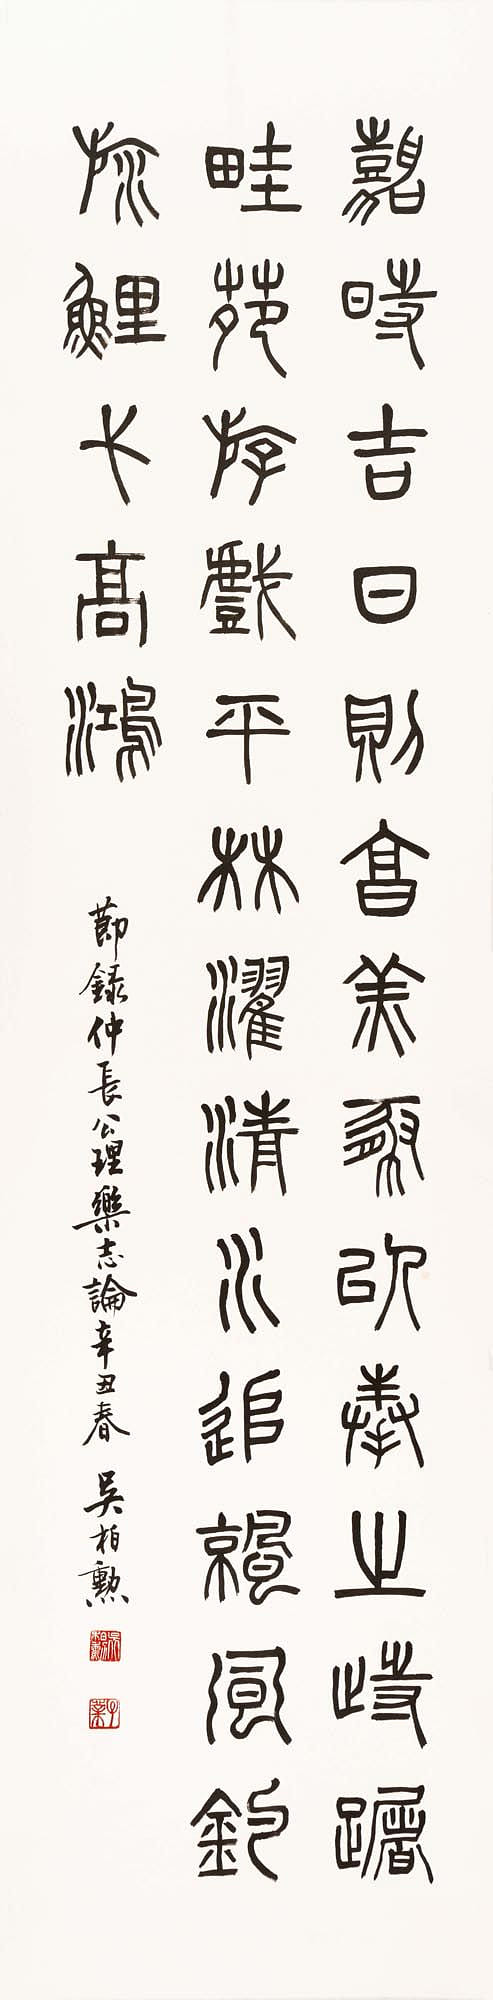 嘉時吉日則亯羔豚㠯奉之歭躇
畦苑斿戲平林濯清水追涼風釣
斿鯉弋高鴻
節錄仲長公理樂志論辛丑春 吳柏勳